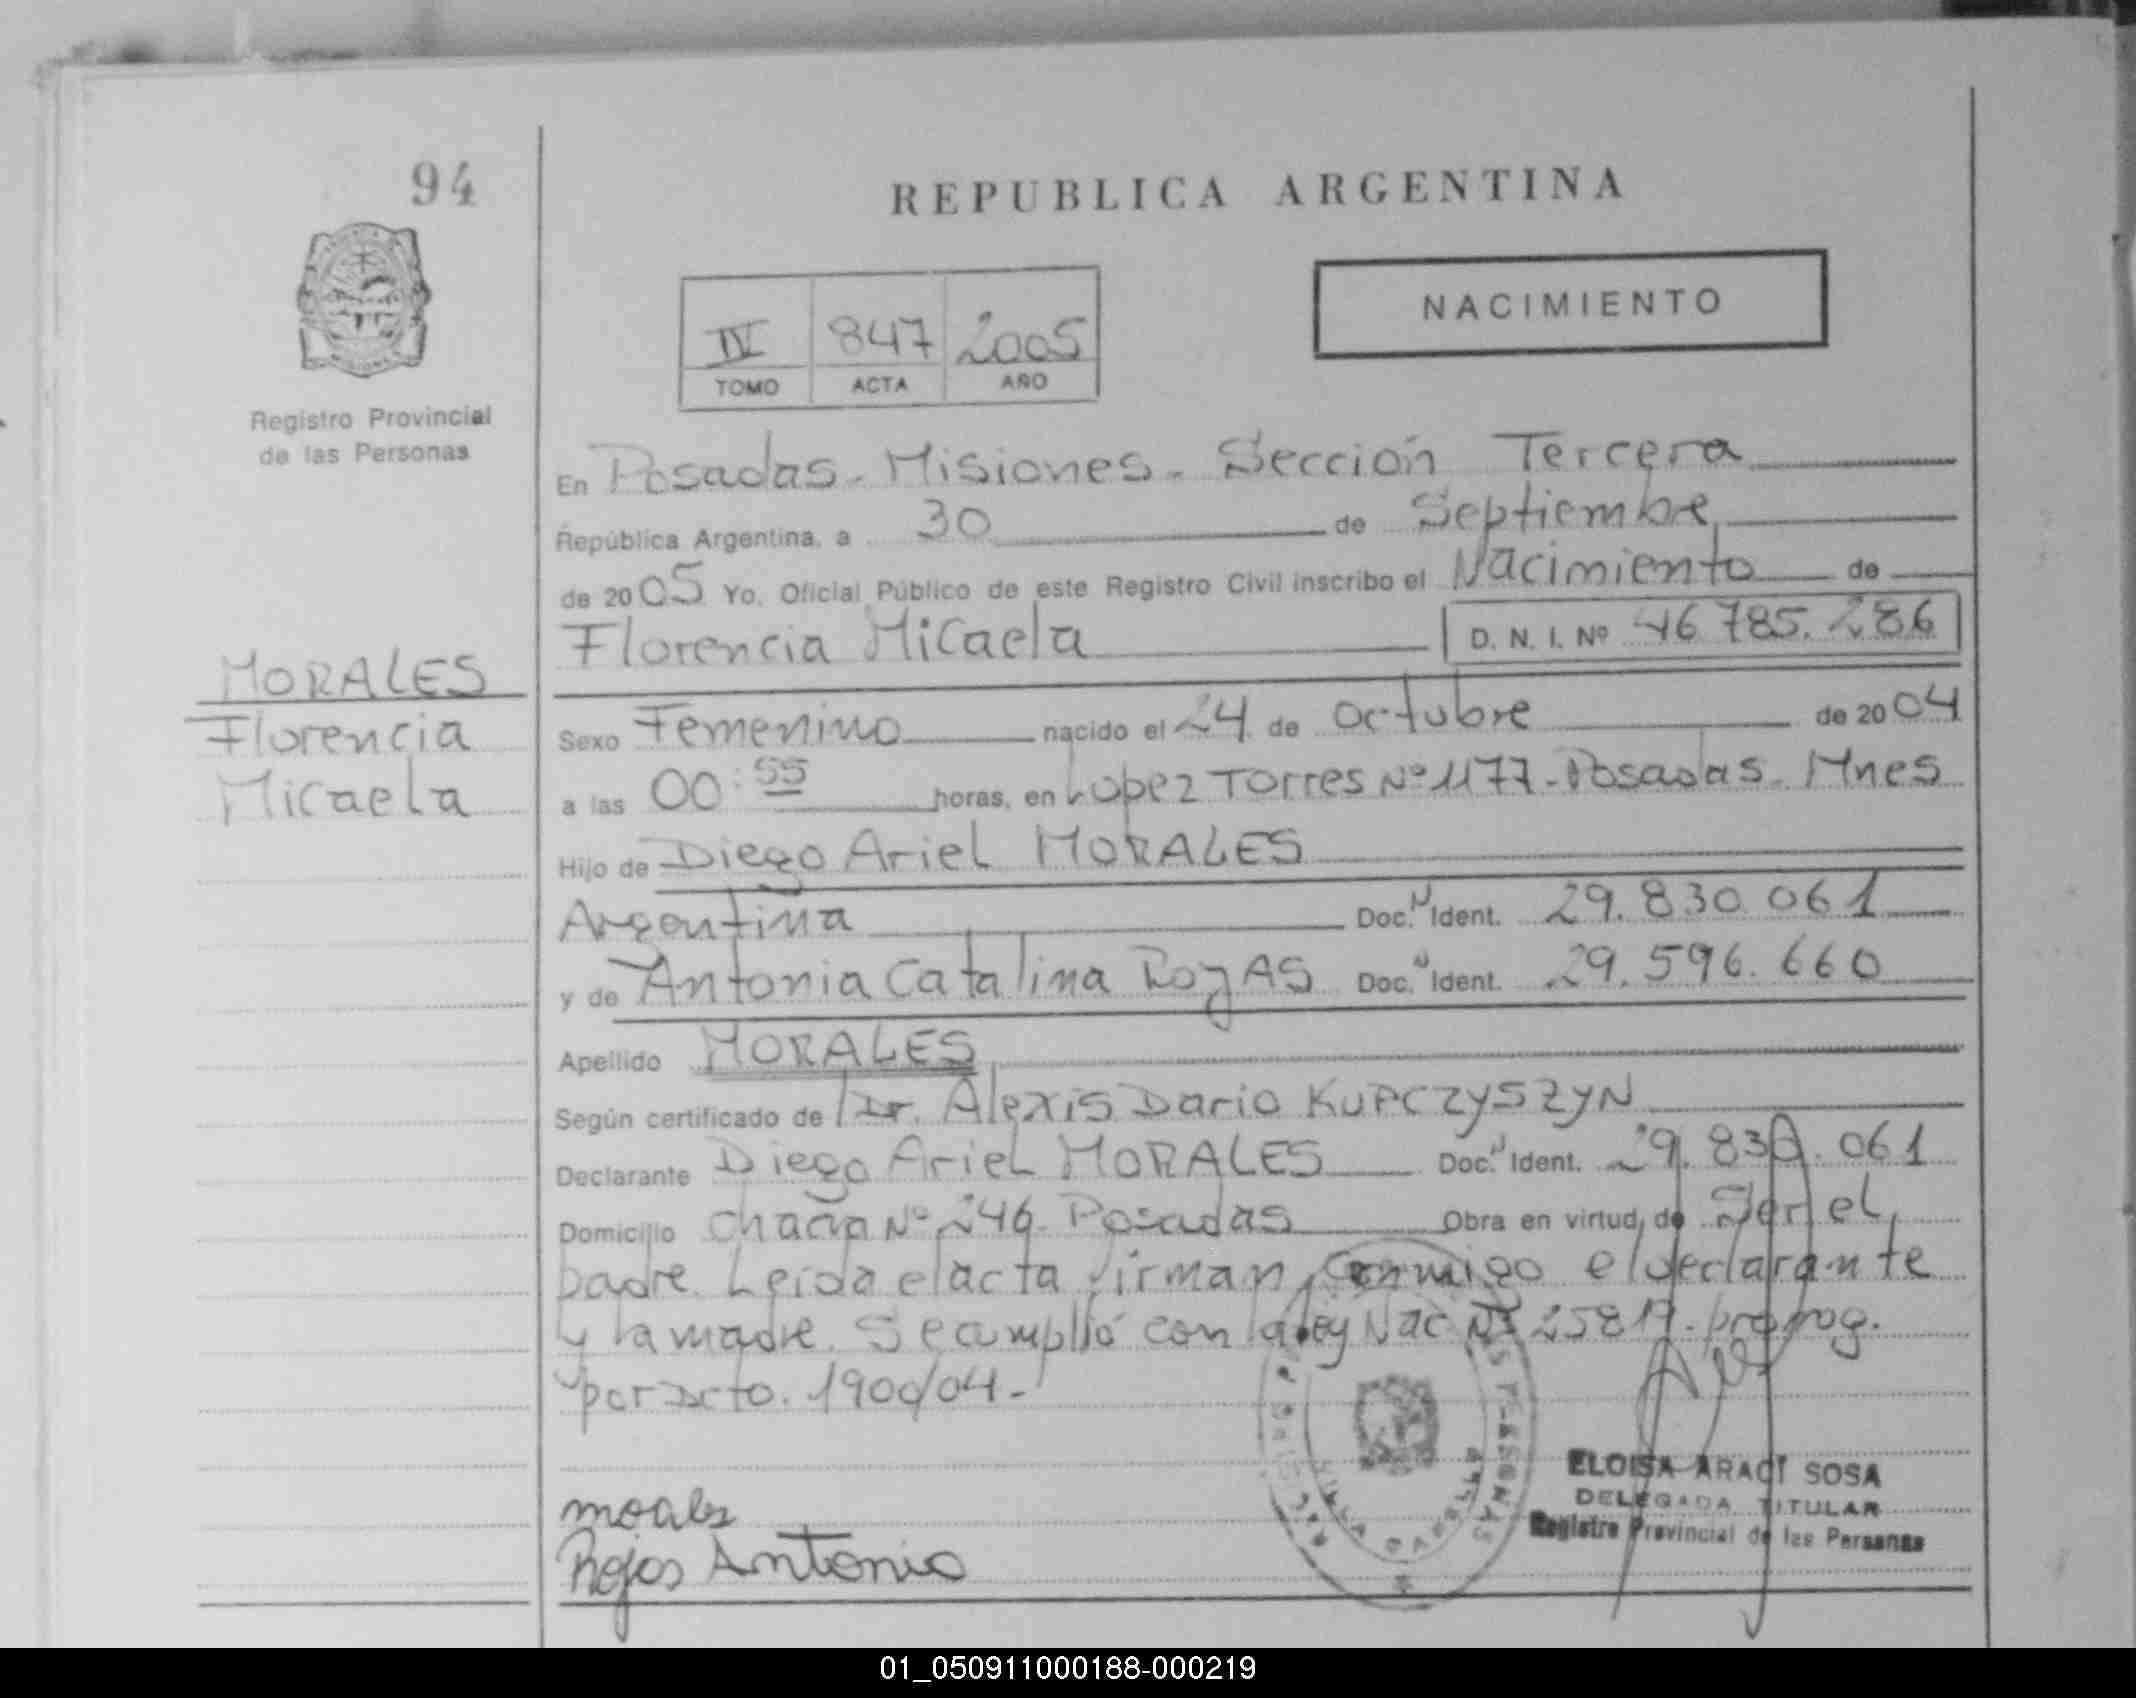 94
REPUBLICA ARGENTINA
NACIMIENTO
IV 847 2005
TOMO ACTA AÑO
Registro Provincial
de las Personas
En Posadas - Misiones - Sección Tercera
República Argentina, a 30 de Septiembre
de 2005 Yo, Oficial Público de este Registro Civil inscribo el Nacimiento de
Florencia Micaela D. N. I. Nº 46 785. 286
MORALES
Florencia
Micaela
Sexo Femenino nacido el 24 de octubre de 2004
a las 00:55 horas, en Lopez Torres Nº 1177 - Posadas - Mnes
Hijo de Diego Ariel MORALES
Argentina Doc. Ident. 29. 830. 061
y de Antonia Catalina RojAS Doc. Ident. 29. 596. 660
Apellido MORALES
Según certificado de Dr. Alexis Dario KUPCZYSZYN
Declarante Diego Ariel MORALES Doc. Ident. 29. 830. 061
Domicilio chacra Nº 246 - Posadas Obra en virtud de Ser el
padre. Leida el acta firman conmigo el declarante
y la madre. Se cumplió con la ley Nac Nº 25819. prorrog.
por Dcto. 1900/04 -
Rojas Antonia
ELOISA ARACI SOSA
DELEGADA TITULAR
Registro Provincial de las Personas
01_050911000188-000219